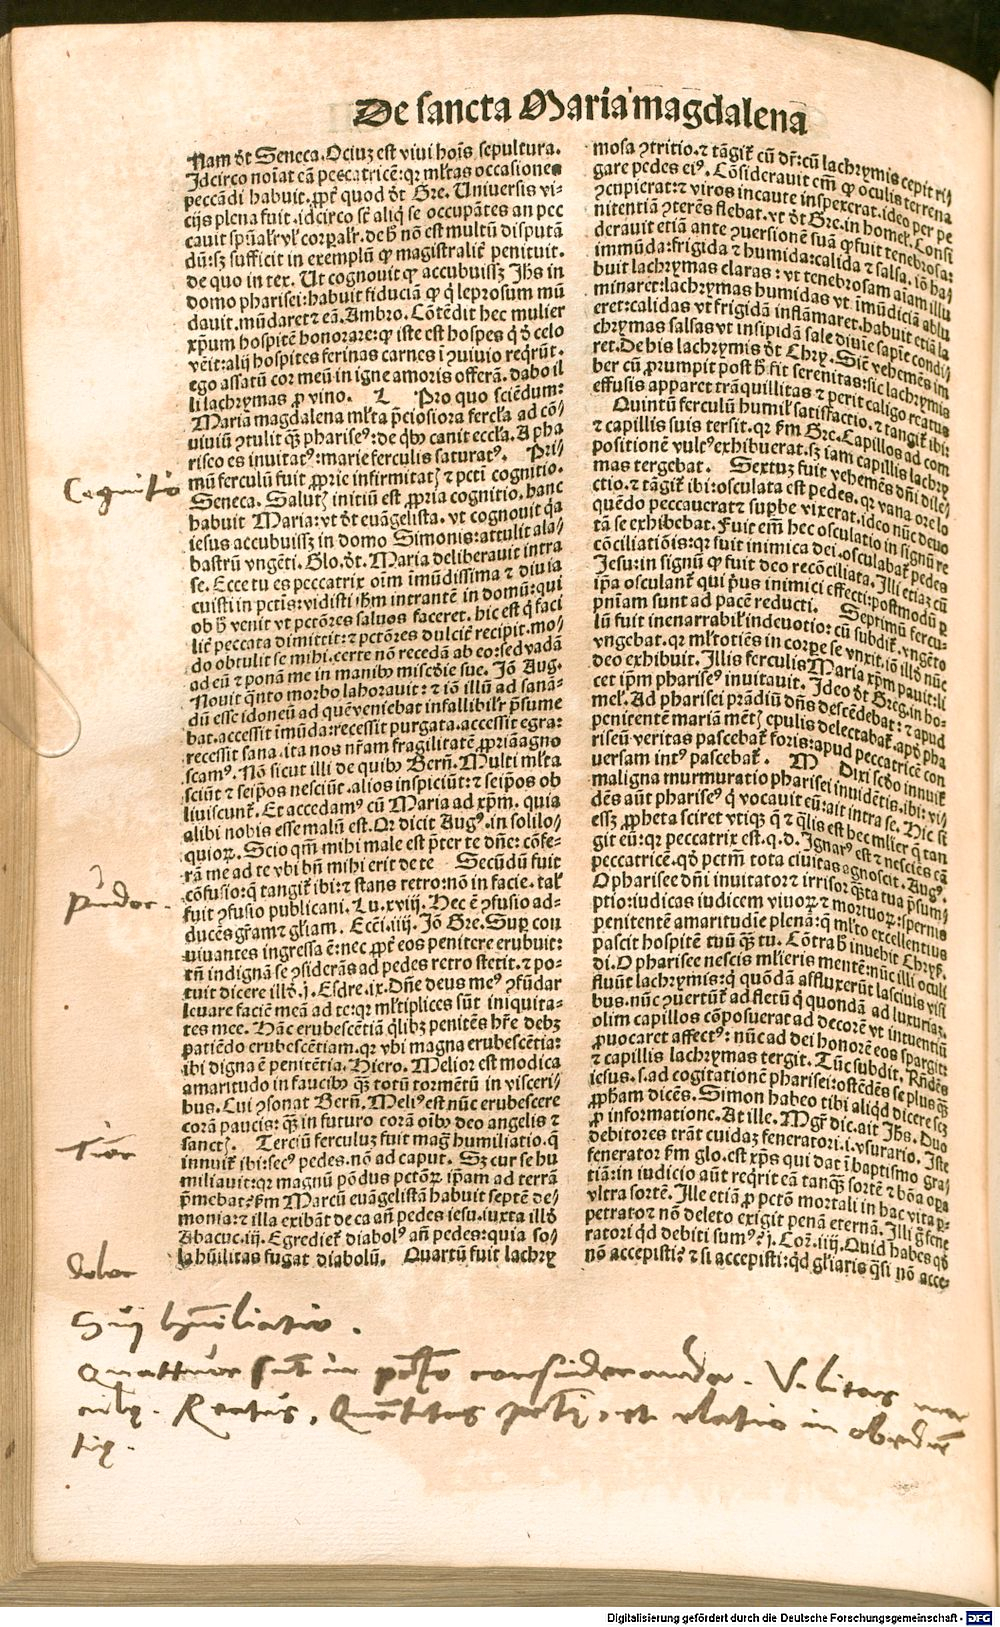 De sancta Maria magdalena
Nam ꝺt Seneca. Ociuꝫ est viui hoīs sepultura.
Idcirco noīat eā peccatricē: qꝛ ml̓tas occasiones
peccādi habuit. ꝓpt̓ quod ꝺt Gre. Universis vi-
cijs plena fuit. idcirco sc̓ aliq̇ se occupātes an pec
cauit
dū: sꝫ sufficit in exemplū ꝙ magistralit̓ penituit.
de quo in tex. Ut cognouit ꝙ accubuissꝫ Jh̄s in
domo pharisei: habuit fiduciā ꝙ q̇ leprosum mū
dauit. mūdaret ⁊ eā. Ambro. Cōtēdit hec mulier
xp̄um hospitē honorare: ꝙ iste est hospes q̇ ꝺ celo
vēit: alij hospites ferinas carnes ī ꝯuiuio reqͥrūt.
ego assatū cor meū in igne amoris offerā. dabo il
li lachrymas ꝓ vino. L Pro quo sciēdum:
Maria magdalena ml̓ta p̄ciosiora fercl̓a ad cō-
uiuiū ꝯtulit qꝫ phariseꝰ: de qͥbꝰ canit eccl̓a. A pha
risco es inuitatꝰ: marie ferculis saturatꝰ. Pri-
mū ferculū fuit ꝓprie infirmitatꝫ ⁊ pctī cognitio.
Seneca. Salutꝫ initiū est ꝓpria cognitio. hanc
habuit Maria: vt ꝺt euāgelista. vt cognouit qͣ
iesus accubuissꝫ in domo Simonis: attulit ala-
bastrū vngēti. Glo. ꝺt. Maria deliberauit intra
se. Ecce tu es peccatrix oīm īmūdissima ⁊ diu ia
cuisti in pctīs: vidisti ih̄m intrantē in domū: qui
ob h̄ venit vt pctōres saluos faceret. hic est q̇ faci
lit̓ peccata dimittit: ⁊ pctōres dulcit̓ recipit. mo-
do obtulit se mihi. certe nō recedā ab eo: sed vadā
ad eū ⁊ ponā me in manibꝰ misc̄die sue. Jō Aug.
Nouit qͣnto morbo laborauit: ⁊ iō illū ad sanā-
dū esse idoneū ad quē veniebat infallibilr̓ p̄sume
bat. accessit imūda: recessit purgata. accessit egra:
recessit sana. ita nos nr̄am fragilitatē ꝓpriā agno
scamꝰ. Nō sicut illi de quibꝰ Bern̄. Multi ml̓ta
sciūt ⁊ seip̄os nesciūt. alios inspiciūt: ⁊ seip̄os ob
liuiscunt̓. Et accedamꝰ cū Maria ad xp̄m. quia
alibi nobis esse malū est. Qꝛ dicit Augꝰ. in solilo-
quioꝝ. Scio qm̄ mihi male est p̄ter te dn̄e: cōfe-
rā me ad te vbi bn̄ mihi erit de te Secūdū fuit
cōfusio: q̄ tangit̓ ibi: ⁊ stans retro: nō in facie. tal̓
fuit ꝯfusio publicani. Lu. xviij. Hec ē ꝯfusio ad-
ducēs gr̄am ⁊ gl̓iam. Ecc̄i. iiij. Jō Gre. Suꝑ con
uiuantes ingressa ē: nec ꝓpt̓ eos penitere erubuit:
tn̄ indignā se ꝯsiderās ad pedes retro stetit. ⁊ po-
tuit dicere illꝺ. j. Esdre. ix. Dn̄e deus meꝰ ꝯfūdar
leuare faciē meā ad te: qꝛ ml̓tiplices sūt iniquita-
tes mee. Hāc erubescētiā qͥlibꝫ penitēs hr̄e debꝫ
patiēdo erubescētiam. qꝛ vbi magna erubescētia:
ibi digna ē penitētia. Hiero. Melior est modica
amaritudo in faucibꝰ qꝫ totū tormētū in visceri-
bus. Cui ꝯsonat Bern̄. Meliꝰ est nūc erubescere
corā paucis: qꝫ in futuro corā oibꝰ deo angelis ⁊
sanctꝫ. Terciū ferculuꝫ fuit mag̓ humiliatio. q̄
innuit̓ ibi: secꝰ pedes. nō ad caput. Sꝫ cur se hu
miliauit: qꝛ magnū pōdus pctōꝝ ip̄am ad terrā
p̄mebat: ẜm Marcū euāgelistā habuit septē de-
monia: ⁊ illa exibāt de ca an̄ pedes iesu. iuxta illꝺ
Abacuc. iij. Egrediet̓ diabolꝰ an̄ pedes: quia so-
la hūilitas fugat diabolū. Quartū fuit lachry
mosa ꝯtritio. ⁊ tāgit̓ cū dr̄: cū lachrymis cepit ri-
gare pedes eiꝰ. Cōsiderauit em̄ ꝙ oculis terrena
ꝯcupierat: ⁊ viros incaute inspexerat. ideo per pe
nitentiā ꝯterēs flebat. vt ꝺt Gre. in homel̓. Consi
derauit etiā ante ꝯuersionē suā ꝙ fuit tenebrosa:
immūda: frigida ⁊ humida: calida ⁊ salsa. iō ha-
buit lachrymas claras: vt tenebrosam aīam illu
minaret: lachrymas humidas vt īmūdiciā ablu
eret: calidas vt frigidā inflāmaret. habuit etiā la
chrymas salsas vt insipidā sale diuīe sapīe condi-
ret. De his lachrymis ꝺt Chry. Sic̄ vehemēs im
ber cū ꝓrumpit post h̄ fit serenitas: sic lachrymis
effusis apparet trāquillitas ⁊ perit caligo reatus
Quintū ferculū humil̓ satisfactio. ⁊ tangit̓ ibi:
⁊ capillis suis tersit. qꝛ ẜm Gre. Capillos ad com
positionē vultꝰ exhibuerat. sꝫ iam capillis lachry
mas tergebat. Sextuꝫ fuit vehemēs dn̄i dile-
ctio. ⁊ tāgit̓ ibi: osculata est pedes. qꝛ vana ore lo
quēdo peccauerat ⁊ suꝑbe vixerat. ideo nūc deuo
tā se exhibebat. Fuit em̄ hec osculatio in signū re
cōciliatiōis: qꝛ fuit inimica dei. osculabat̓ pedes
Jesu: in signū ꝙ fuit deo recōciliata. Illi etiaꝫ cū
ip̄a osculant̓ qui p̄us inimici effecti: postmodū ꝑ
pn̄iam sunt ad pacē reducti. Septimū fercu-
lū fuit inenarrabil̓ indeuotio: cū subdit̓. vngēto
vngebat. qꝛ ml̓totiēs in corꝑe se vnxit. iō illꝺ nūc
deo exhibuit. Illis ferculis Maria xp̄m pauit: li
cet ip̄m phariseꝰ inuitauit. Ideo ꝺt Greg. in ho-
mel̓. Ad pharisei prādiū dn̄s descēdebat: ⁊ apud
penitentē mariā mētꝫ epulis delectabat̓. apꝺ pha
riseū veritas pascebat̓ foris: apud peccatricē con
versam intꝰ pascebat̓. M Dixi scꝺo innuit̓
maligna murmuratio pharisei inuidētis. ibi: vi-
dēs aūt phariseꝰ q̇ vocauit eū: ait intra se. Hic si
essꝫ ꝓpheta sciret vtiqꝫ q̄ ⁊ qͣlis est hec ml̓ier q̄ tan
git eū: qꝛ peccatrix est. q. d. Ignarꝰ est ⁊ nesciēs eā
peccatricē. qꝺ pctm̄ tota ciuitas agnoscit. Augꝰ.
O pharisee dn̄i inuitator ⁊ irrisor qͣ̄ta tua p̄sum-
ptio: iudicas iudicem viuoꝝ ⁊ mortuoꝝ: spernis
penitentē amaritudīe plenā: q̄ ml̓to excellentius
pascit hospitē tuū qꝫ tu. Cōtra h̄ inuehit Chrys.
di. O pharisee nescis ml̓ieris mentē: nūc illi oculi
fluūt lachrymis: q̇ quōdā affluxerūt lasciuis visi
bus. nūc ꝯuertūt̓ ad fletū q̇ quondā ad luxuriaꝫ.
olim capillos cōposuerat ad decorē vt intuentiū
ꝓuocaret affectꝰ: nūc ad dei honorē eos spargit:
⁊ capillis lachrymas tergit. Tūc subdit. Rn̄dēs
iesus. s. ad cogitationē pharisei: ostēdēs se plus qꝫ
ꝓpham dicēs. Simon habeo tibi aliqͥd dicere scꝫ
ꝓ informatione. At ille. Mgr̄ dic. ait Jh̄s. Duo
debitores erāt cuidaꝫ feneratori. i. vsurario. Iste
fenerator ẜm glo. est xp̄s qui dat ī baptismo gra-
tiā: in iudicio aūt reqͥrit eā tanqꝫ sortē ⁊ bōa oꝑa
vltra sortē. Ille etiā ꝓ pctō mortali in hac vita ꝑ-
petrato ⁊ nō deleto exigit penā eternā. Illi g̊ fene
ratori qͥd debiti sumꝰ? j. Coꝝ. iiij. Quid habes qꝺ
nō accepisti? ⁊ si accepisti: qͥd gl̓iaris qͣsi nō acce-
Cognitio
pudor.
Timor
dolor
Sui humiliatio.
Quattuor sunt in pctō consideranda. Vilitas
Reatus, Quātitas pctī, et elatio in
Digitalisierung gefördert durch die Deutsche Forschungsgemeinschaft - DFG